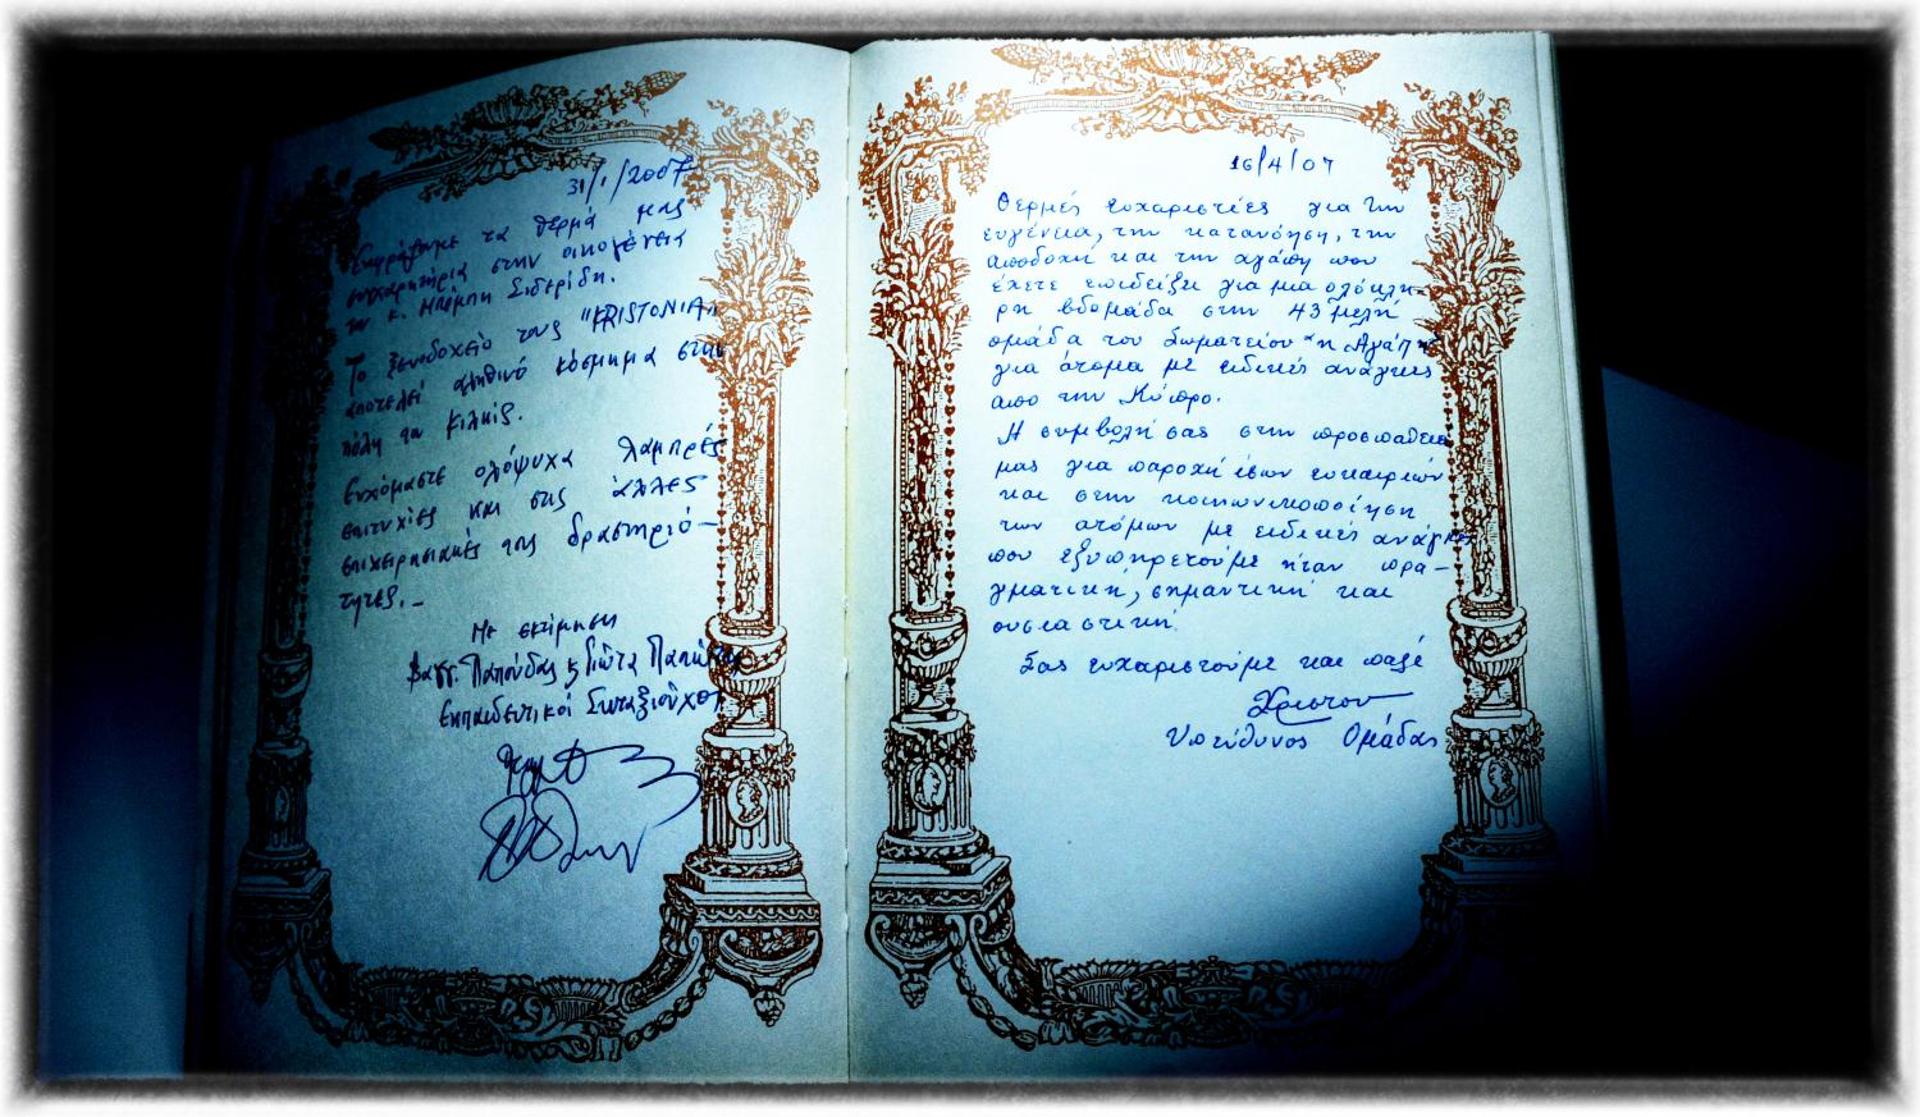 31/1/2007
Εκφράζουμε τα θερμά μας
συγχαρητήρια στην οικογένεια
του κ. Μπάμπη Σιδερίδη.
Το ξενοδοχείο τους "KRISTONIA"
αποτελεί αληθινό κόσμημα στην
πόλη του Κιλκίς.
Ευχόμαστε ολόψυχα λαμπρές
επιτυχίες και στις άλλες
επιχειρησιακές της δραστηριό-
τητες.-
Με εκτίμηση
Βαγγ. Παπούδας & Γιώτα
Εκπαιδευτικοί Συνταξιούχοι
16/4/07
Θερμές ευχαριστίες για την
ευγένεια, την κατανόηση, την
αποδοχή και την αγάπη που
έχετε επιδείξει για μια ολόκλη-
ρη βδομάδα στην 43 μελή
ομάδα του Σωματείου "η Αγάπη"
για άτομα με ειδικές ανάγκες
απο την Κύπρο.
Η συμβολή σας στην προσπάθεια
μας για παροχή ίσων ευκαιριών
και στην κοινωνικοποίηση
των ατόμων με ειδικές ανάγκες
που εξυπηρετούμε ήταν πρα-
γματική, σημαντική και
ουσιαστική.
Σας ευχαριστούμε και παλέ
Χρίστου
Υπεύθυνος Ομάδας